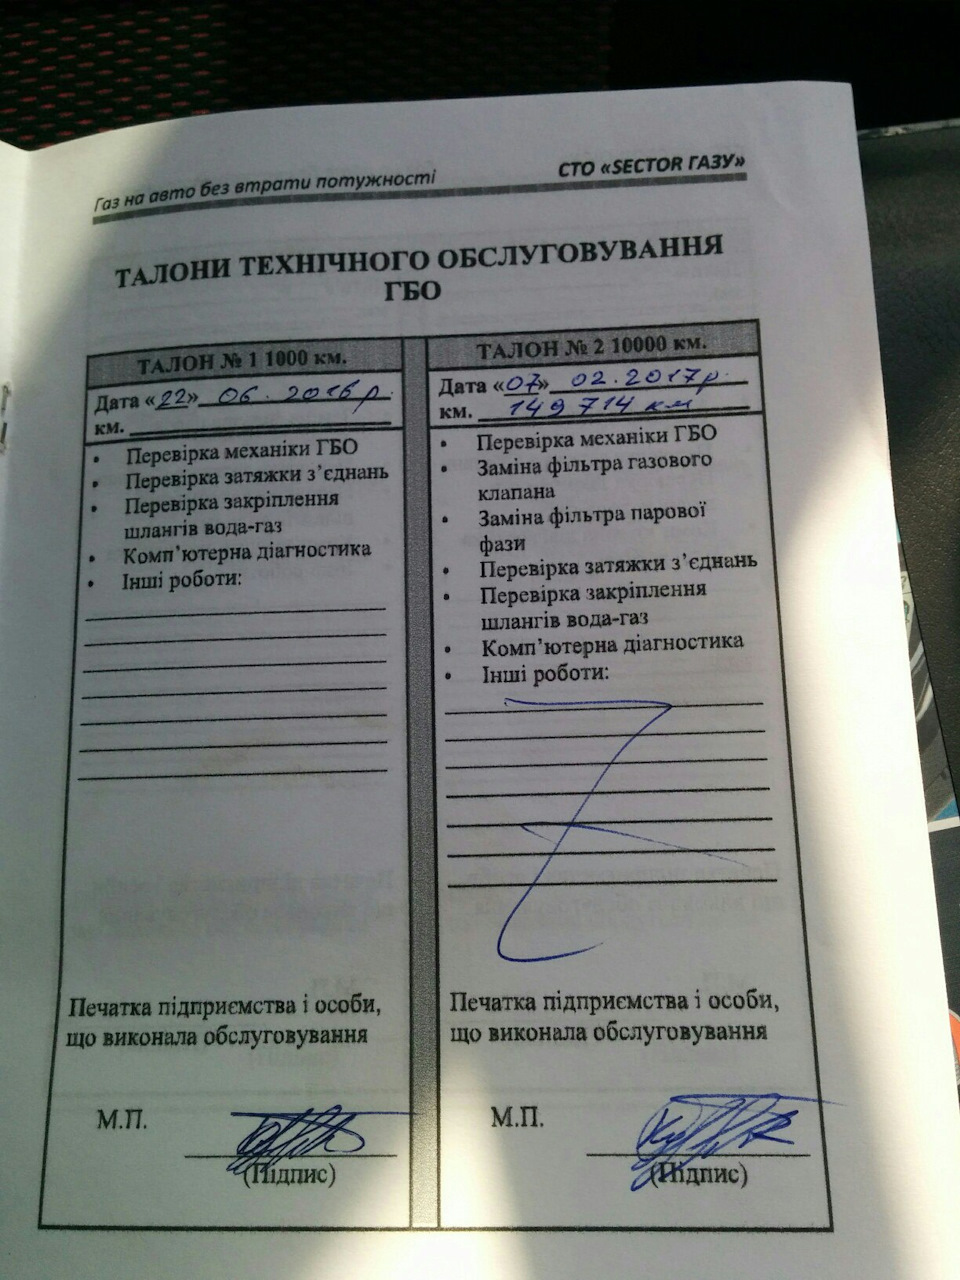 Газ на авто без втрати потужності
СТО «SECTOR ГАЗУ»
ТАЛОНИ ТЕХНІЧНОГО ОБСЛУГОВУВАННЯ
ГБО
ТАЛОН № 1 1000 км.
Дата «22» 06. 2016 р.
км.
• Перевірка механіки ГБО
• Перевірка затяжки з’єднань
• Перевірка закріплення
шлангів вода-газ
• Комп’ютерна діагностика
• Інші роботи:
Печатка підприємства і особи,
що виконала обслуговування
М.П.
(Підпис)
ТАЛОН № 2 10000 км.
Дата «07» 02.2017р.
км. 149 714 км
• Перевірка механіки ГБО
• Заміна фільтра газового
клапана
• Заміна фільтра парової
фази
• Перевірка затяжки з’єднань
• Перевірка закріплення
шлангів вода-газ
• Комп’ютерна діагностика
• Інші роботи:
Печатка підприємства і особи,
що виконала обслуговування
М.П.
(Підпис)